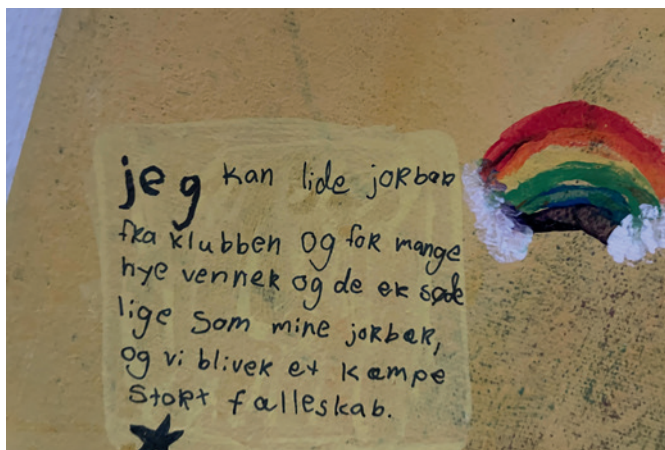 jeg kan lide jorbær
fra klubben og for mange
nye venner og de er søde
lige som mine jorbær,
og vi bliver et kæmpe
stort fælleskab.